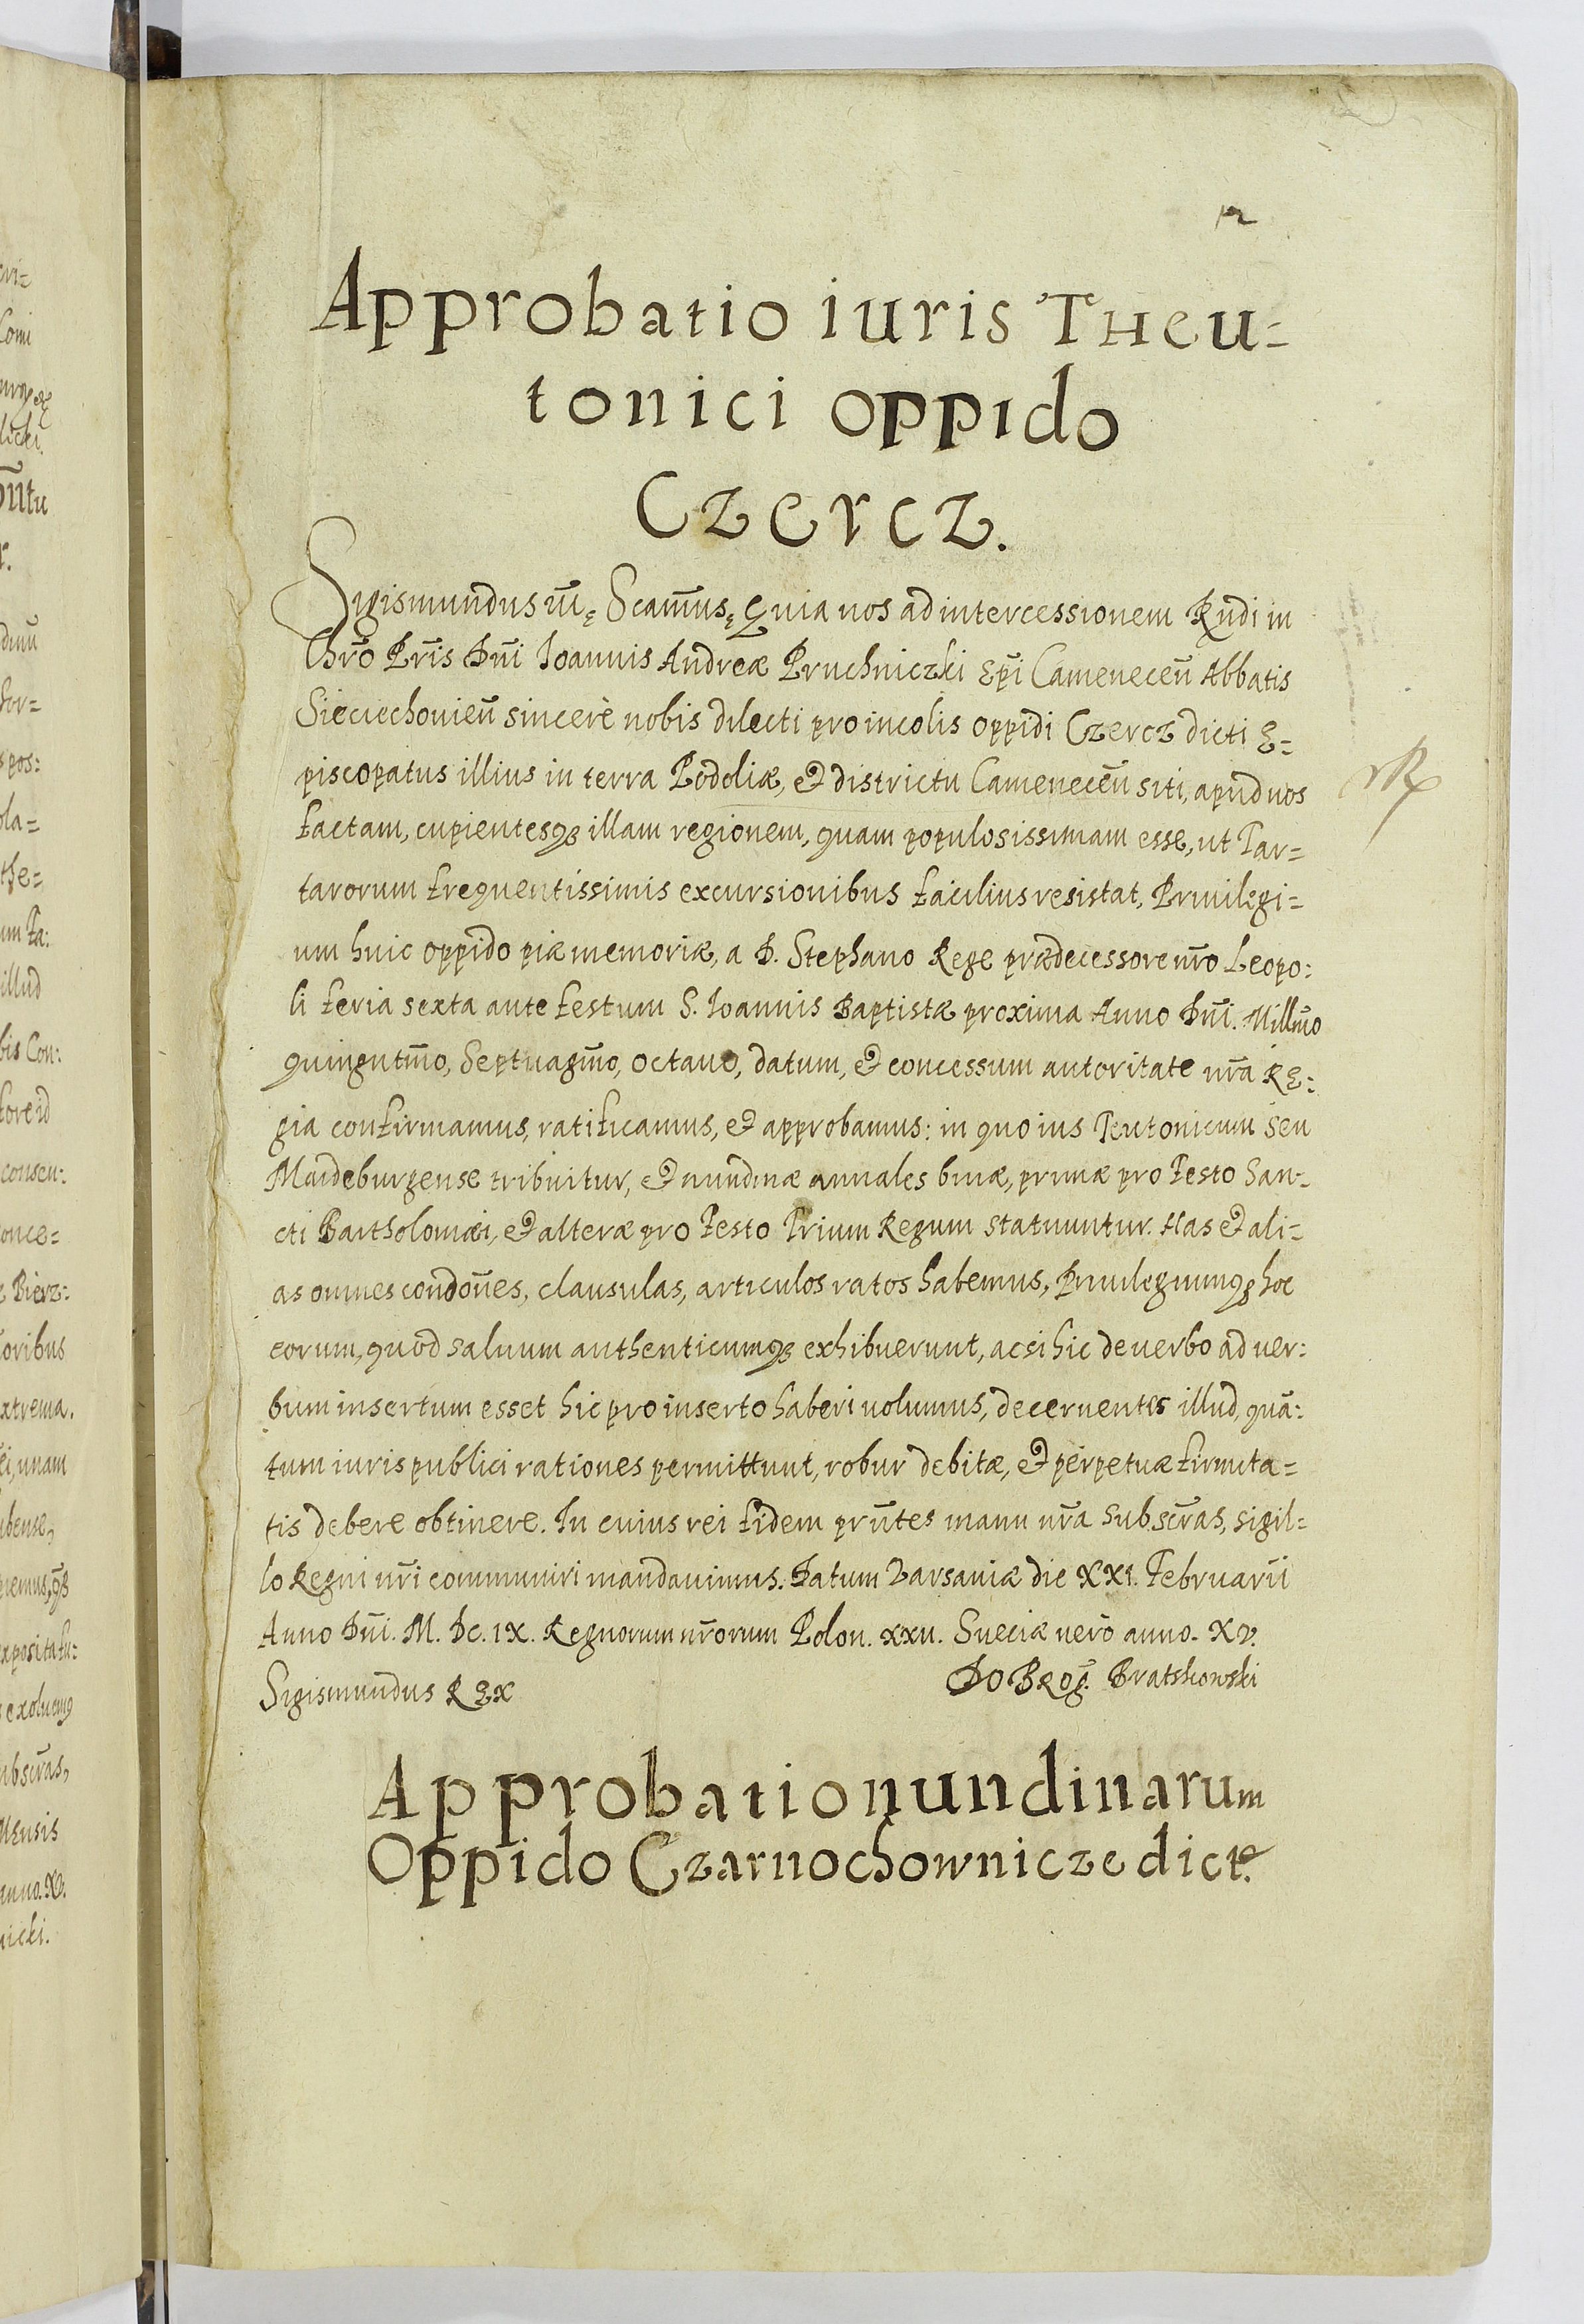 12
Approbatio iuris Theu=
tonici oppido
Czercz.
Sigismundus iii. Scamus, Quia nos ad intercessionem Rndi in
Chro Pris Dni Ioannis Andreæ Pruchniczki Epi Camenecen Abbatis
Sieciechouien sincerè nobis dilecti pro incolis oppidi Czercz dicti E=
piscopatus illius in terra Podoliæ, et districtu Camenecen siti, apud nos
factam, cupientesq illam regionem, quam populosissimam esse, ut Tar=
tarorum frequentissimis excursionibus facilius resistat, Priuilegi=
um huic oppido piæ memoriæ, a D. Stephano Rege prædecessore nro Leopo:
li feria sexta ante festum S. Ioannis Baptistæ proxima Anno Dni. Millmo
quingutmo, Septuagmo, octauo, datum, et concessum autoritate nra RE:
gia confirmamus, ratificamus, et approbamus: in quo ius Teutonicum seu
Maideburgense tribuitur, et nundinæ annales binæ, primæ pro Festo San-
cti Bartholomæi, et alteræ pro Festo Trium Regum statuuntur. Has et ali=
as omnes condones, clausulas, articulos ratos habemus, Priuilegiumq hoc
eorum, quod saluum authenticumq exhibuerunt, acsi hic de uerbo ad uer:
bum insertum esset hic pro inserto haberi uolumus, decernentes illud, quā:
tum iuris publici rationes permittunt, robur debitæ, et perpetuæ firmita=
tis debere obtinere. In cuius rei fidem prntes manu nra subscras, sigil=
lo Regni nri communiri mandauimus. Datum Varsauiæ die XXI. Februarii
Anno Dni. M. DC. IX. Regnorum nrorum Polon. xxii. Sueciæ uerò anno. XV.
Sigismundus REX Dobrog. Bratskowski
Approbatio nundinarum
Oppido Czarnochownicze dicto